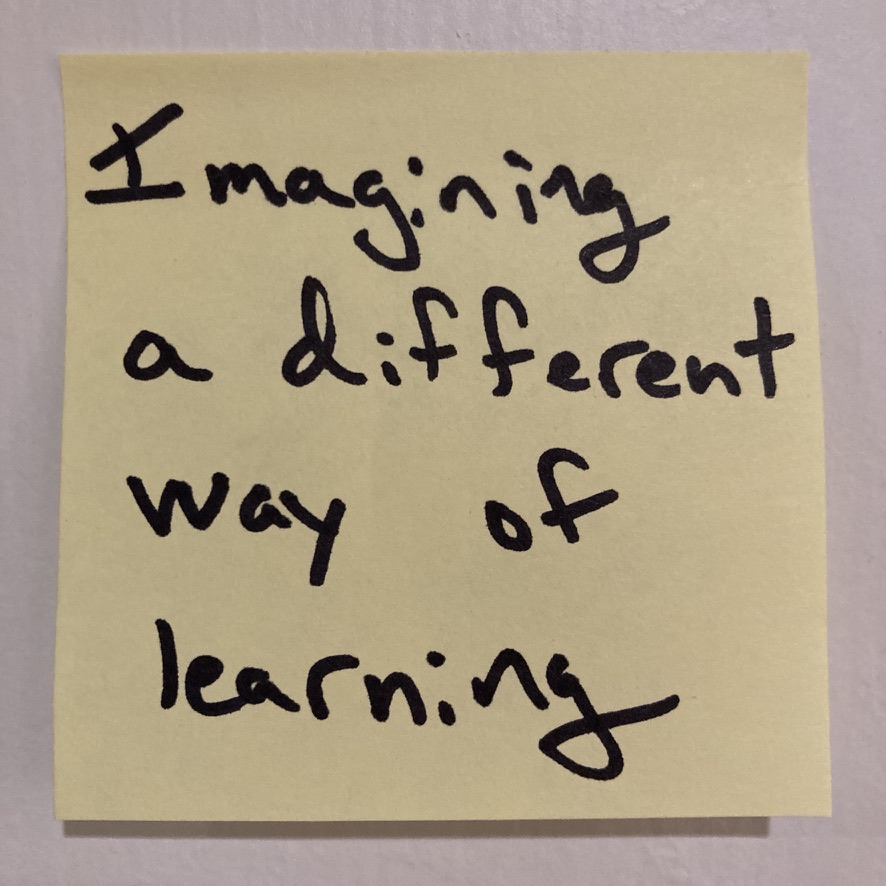 Imagining
a different
way of
learning